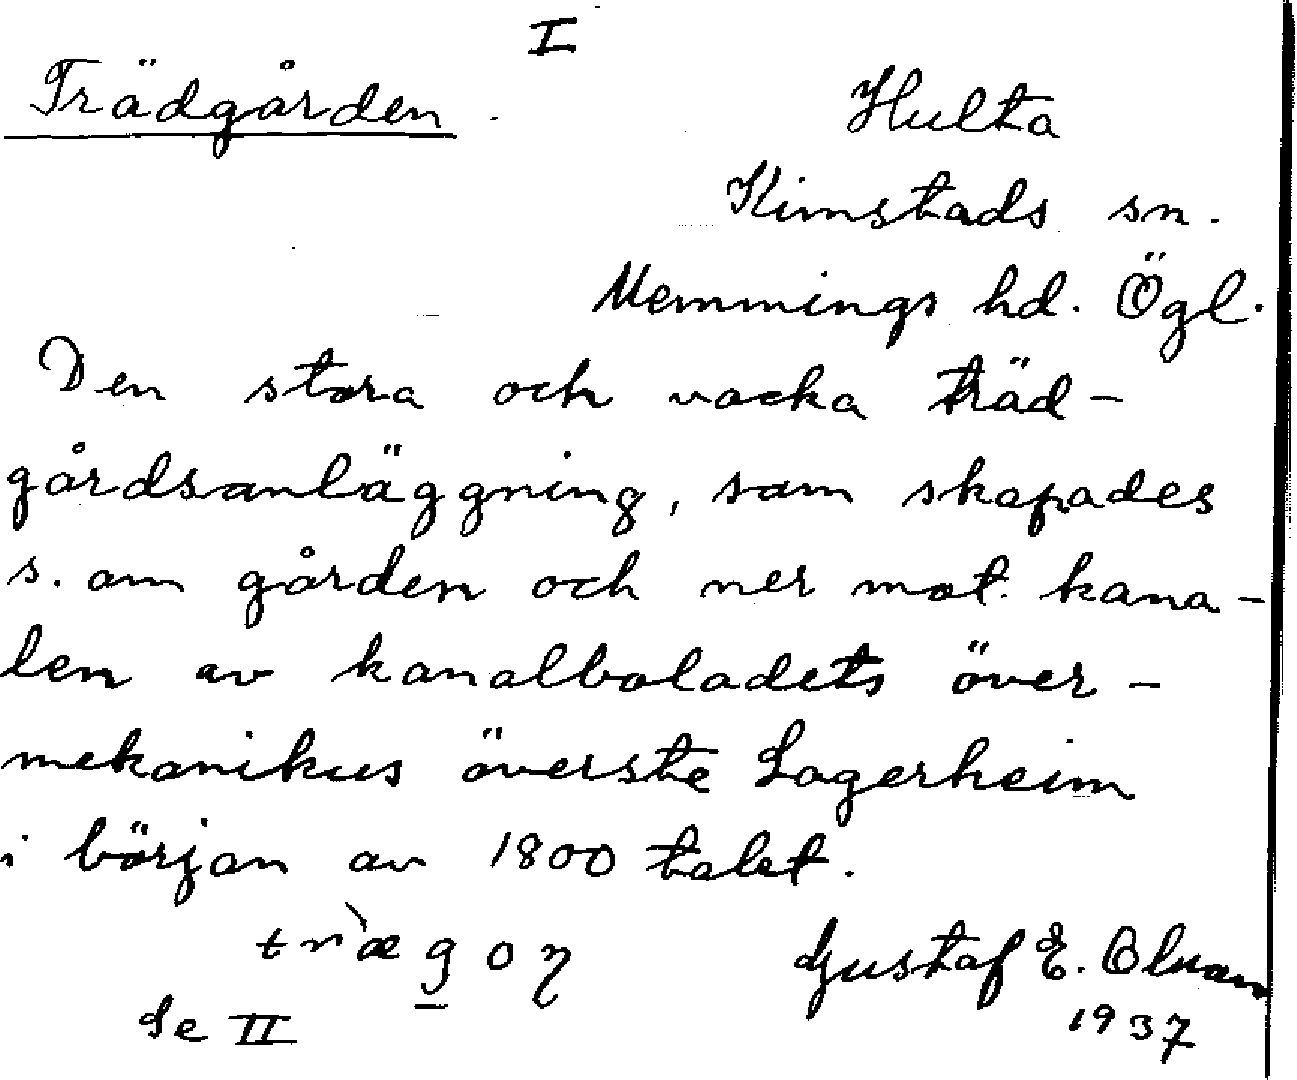 I
Trädgården.
Hulta
Kimstads sn.
Memmings hd. Ögl.
Den stora och vacka träd-
gårdsanläggning, som skapades
s. om gården och ner mot kana-
len av kanalboladets över-
mekanikus överste Lagerheim
i början av 1800 talet.
Gustaf E. Olsson
1937
Se II